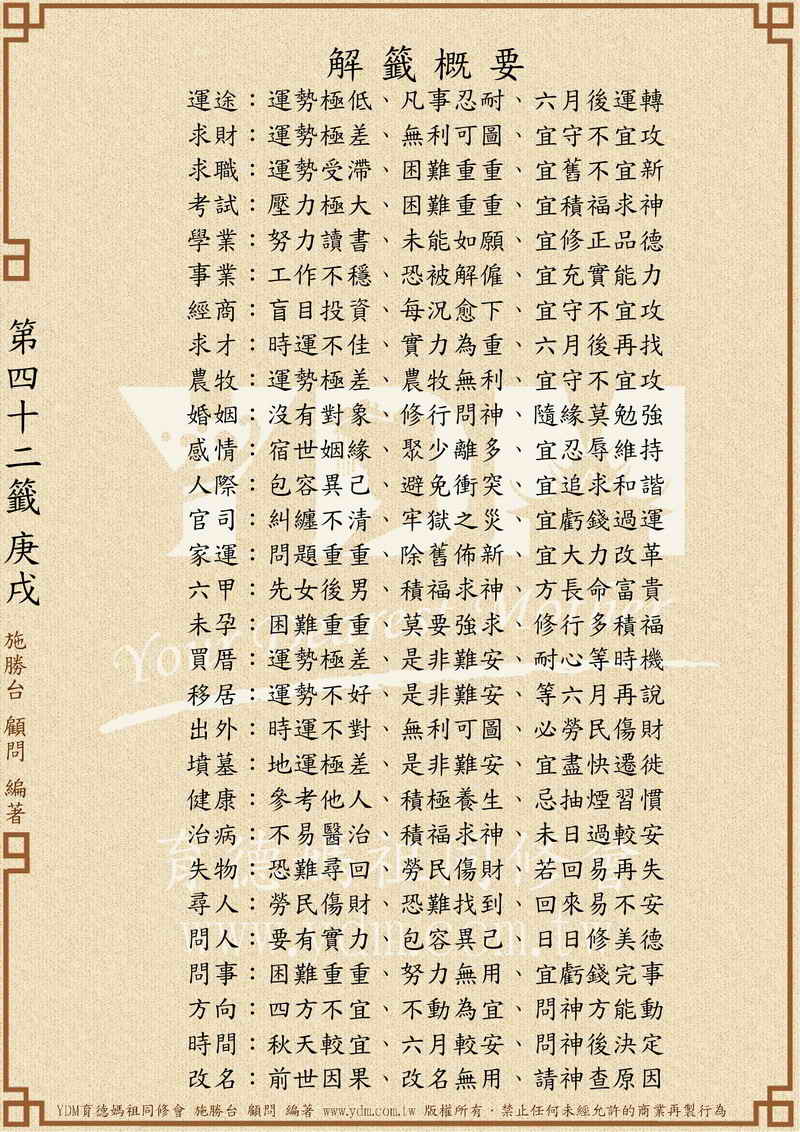 解籤概要
運途：運勢極低、凡事忍耐、六月後運轉
求財：運勢極差、無利可圖、宜守不宜攻
求職：運勢受滯、困難重重、宜舊不宜新
考試：壓力極大、困難重重、宜積福求神
學業：努力讀書、未能如願、宜修正品德
事業：工作不穩、恐被解僱、宜充實能力
經商：盲目投資、每況愈下、宜守不宜攻
求才：時運不佳、實力為重、六月後再找
農牧：運勢極差、農牧無利、宜守不宜攻
婚姻：沒有對象、修行問神、隨緣莫勉強
感情：宿世姻緣、聚少離多、宜忍辱維持
人際：包容異己、避免衝突、宜追求和諧
官司：糾纏不清、牢獄之災、宜虧錢過運
家運：問題重重、除舊佈新、宜大力改革
六甲：先女後男、積福求神、方長命富貴
未孕：困難重重、莫要強求、修行多積福
買厝：運勢極差、是非難安、耐心等時機
移居：運勢不好、是非難安、等六月再說
出外：時運不對、無利可圖、必勞民傷財
墳墓：地運極差、是非難安、宜盡快遷徙
健康：參考他人、積極養生、忌抽煙習慣
治病：不易醫治、積福求神、未日過較安
失物：恐難尋回、勞民傷財、若回易再失
尋人：勞民傷財、恐難找到、回來易不安
問人：要有實力、包容異己、日日修美德
問事：困難重重、努力無用、宜虧錢完事
方向：四方不宜、不動為宜、問神方能動
時間：秋天較宜、六月較安、問神後決定
改名：前世因果、改名無用、請神查原因
第四十二籤 庚戌
施勝台 顧問 編著
YDM
Your Dearest Mother
育德媽祖同修會
www.ydm.com.tw
YDM育德媽祖同修會 施勝台 顧問 編著 www.ydm.com.tw 版權所有．禁止任何未經允許的商業再製行為